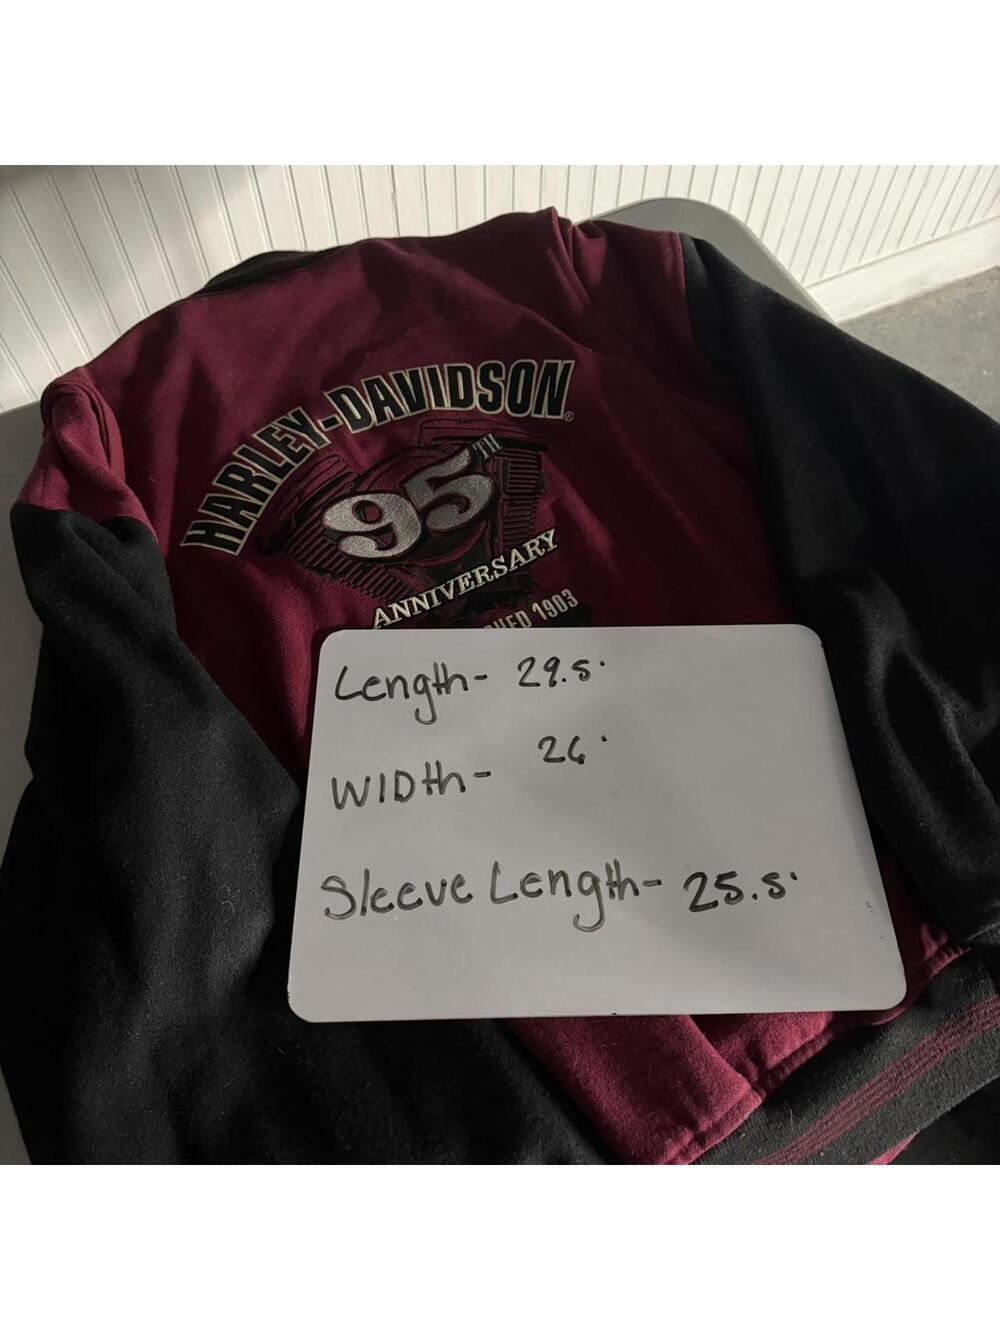 HARLEY-DAVIDSON®
95TH
ANNIVERSARY
1903
Length- 29.5"
WIDth- 26"
Sleeve Length- 25.5"